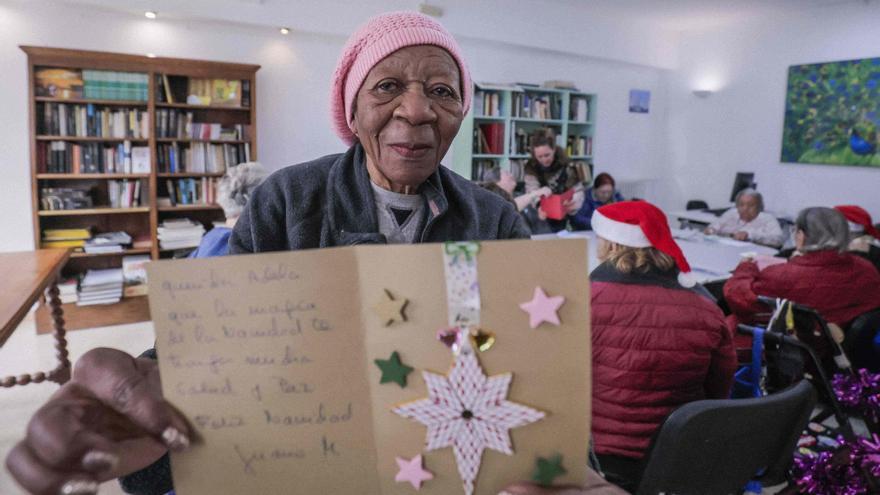 querida Adela
que la magia
de la Navidad te
traiga mucha
Salud y Paz
Feliz Navidad
Juana M